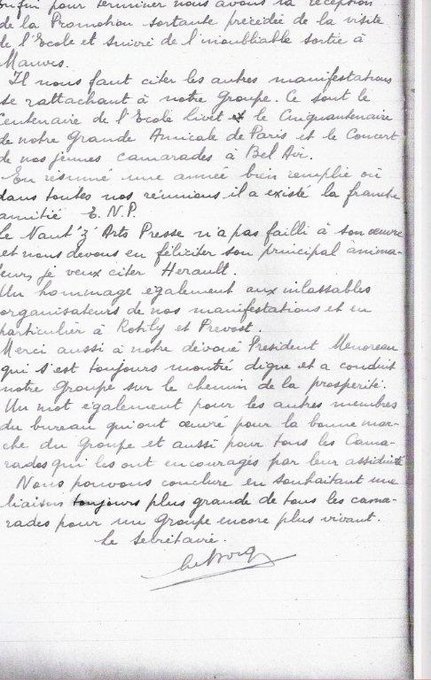 enfin pour terminer nous avons la réception
de la Promotion sortante précédée de la visite
de l'Ecole et suivie de l'inoubliable sortie à
Mauves.
Il nous faut citer les autres manifestations
se rattachant à notre Groupe. Ce sont le
Centenaire de l'Ecole Livet et le Cinquantenaire
de notre Grande Amicale de Paris et le Concert
de nos jeunes camarades à Bel Air.
En résumé une année bien remplie où
dans toutes nos réunions il a existé la franche
amitié E.N.P.
Le Nant'z'Arts Presse n'a pas failli à son œuvre
et nous devons en féliciter son principal anima-
teur, je veux citer Herault.
Un hommage également aux inlassables
organisateurs de nos manifestations et en
particulier à et Prevost.
Merci aussi à notre dévoué President Menoreau
qui s'est toujours montré digne et a conduit
notre Groupe sur le chemin de la prosperité.
Un mot également pour les autres membres
du bureau qui ont œuvré pour la bonne mar-
che du Groupe et aussi pour tous les Cama-
rades qui les ont encouragés par leur assiduité
Nous pouvons conclure en souhaitant une
liaison toujours plus grande de tous les cama-
rades pour un Groupe encore plus vivant.
Le Secrétaire.